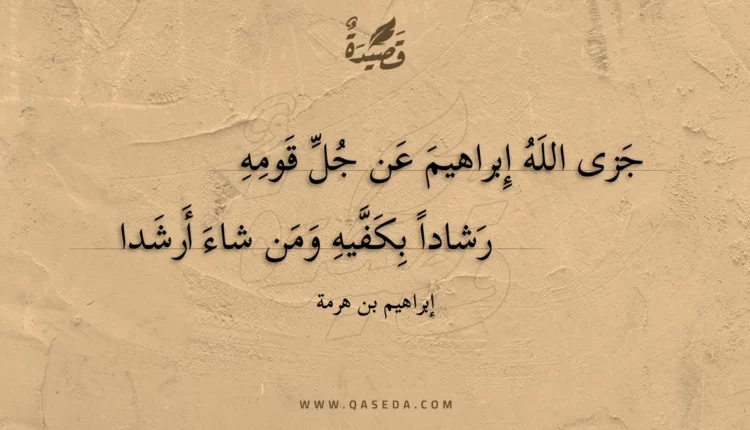 قَصِيدَةٌ
جَزى اللَهُ إِبراهيمَ عَن جُلِّ قَومِهِ
رَشاداً بِكَفَّيهِ وَمَن شاءَ أَرشَدا
إبراهيم بن هرمة
WWW.QASEDA.COM